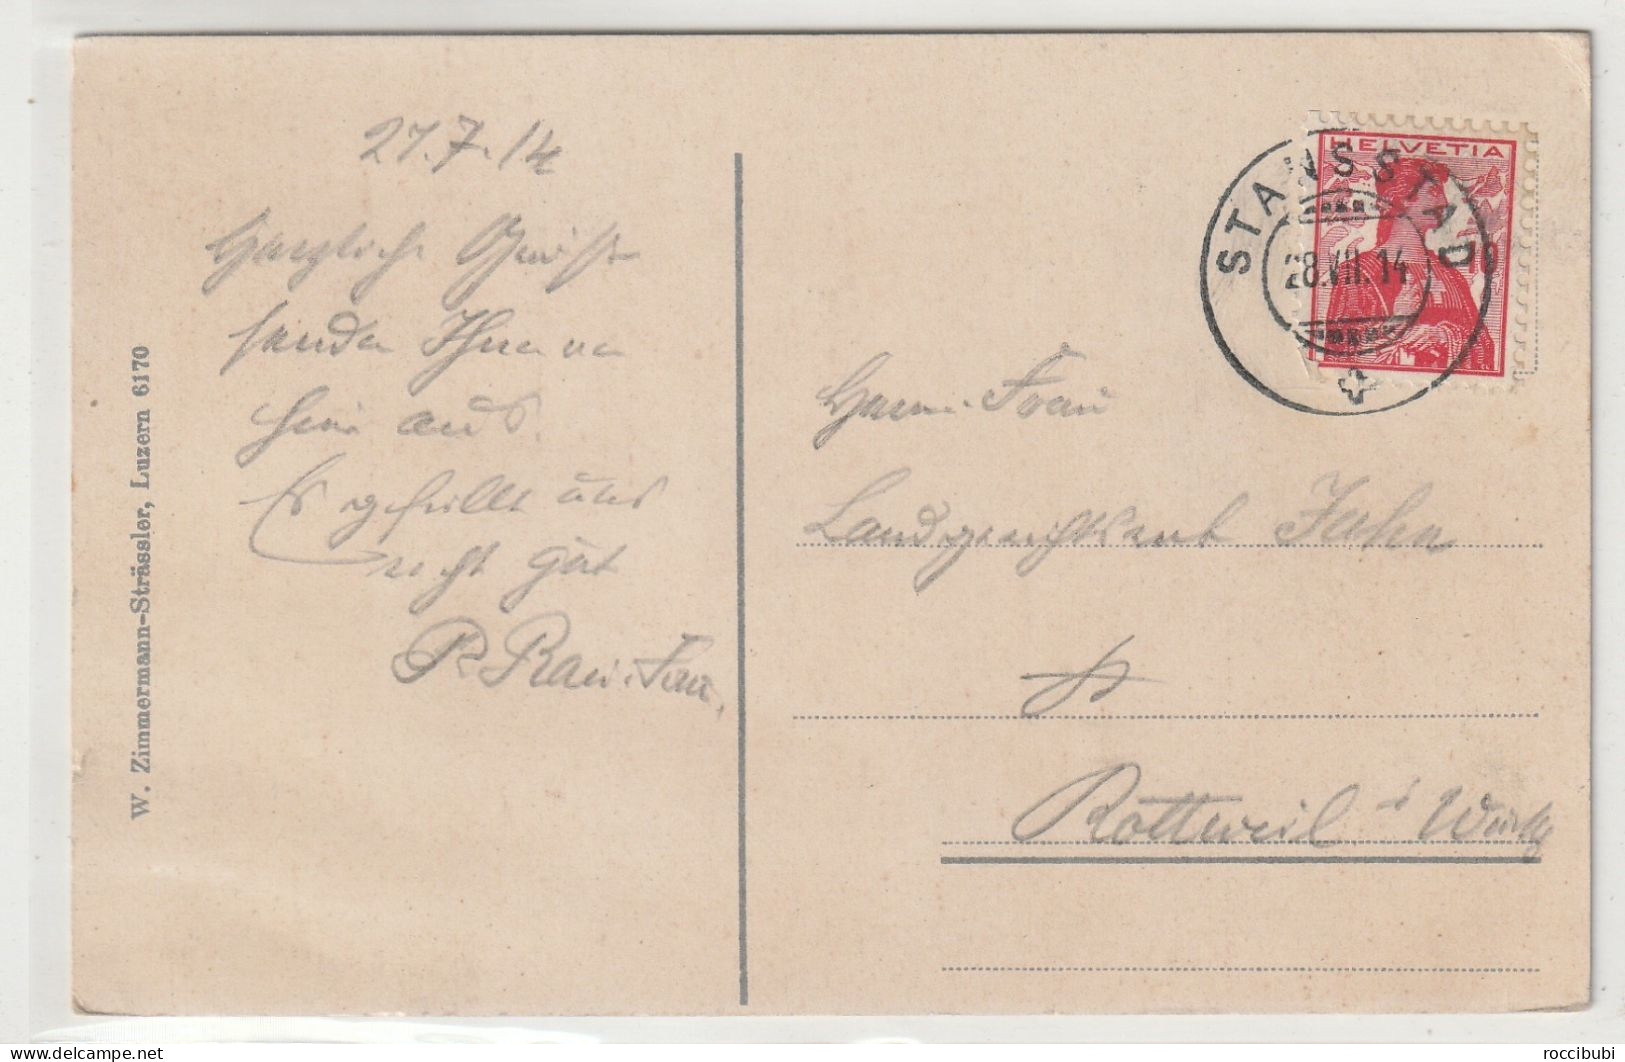 27.7.14
Herzliche Grüße
senden Ihnen von
hier aus.
Es gefällt uns
recht gut
R. Rau. Frau.
W. Zimmermann-Strässler, Luzern 6170
HELVETIA
STANSSTAD
28.VII.14
Frau
Landgerichtsrat Jahn
Rottweil
roccibubi